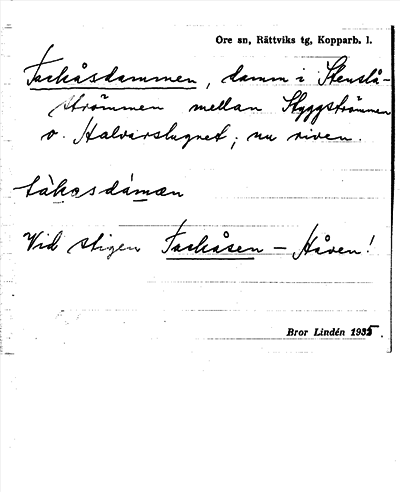 Ore sn, Rättviks tg, Kopparb. l.
Tackåsdammen, damm i Stenslå-
strömmen mellan Styggströmmen
o. Halvarslugnet; nu riven.
tàkasdáman
Vid stigen Tackåsen – Håven!
Bror Lindén 1935.